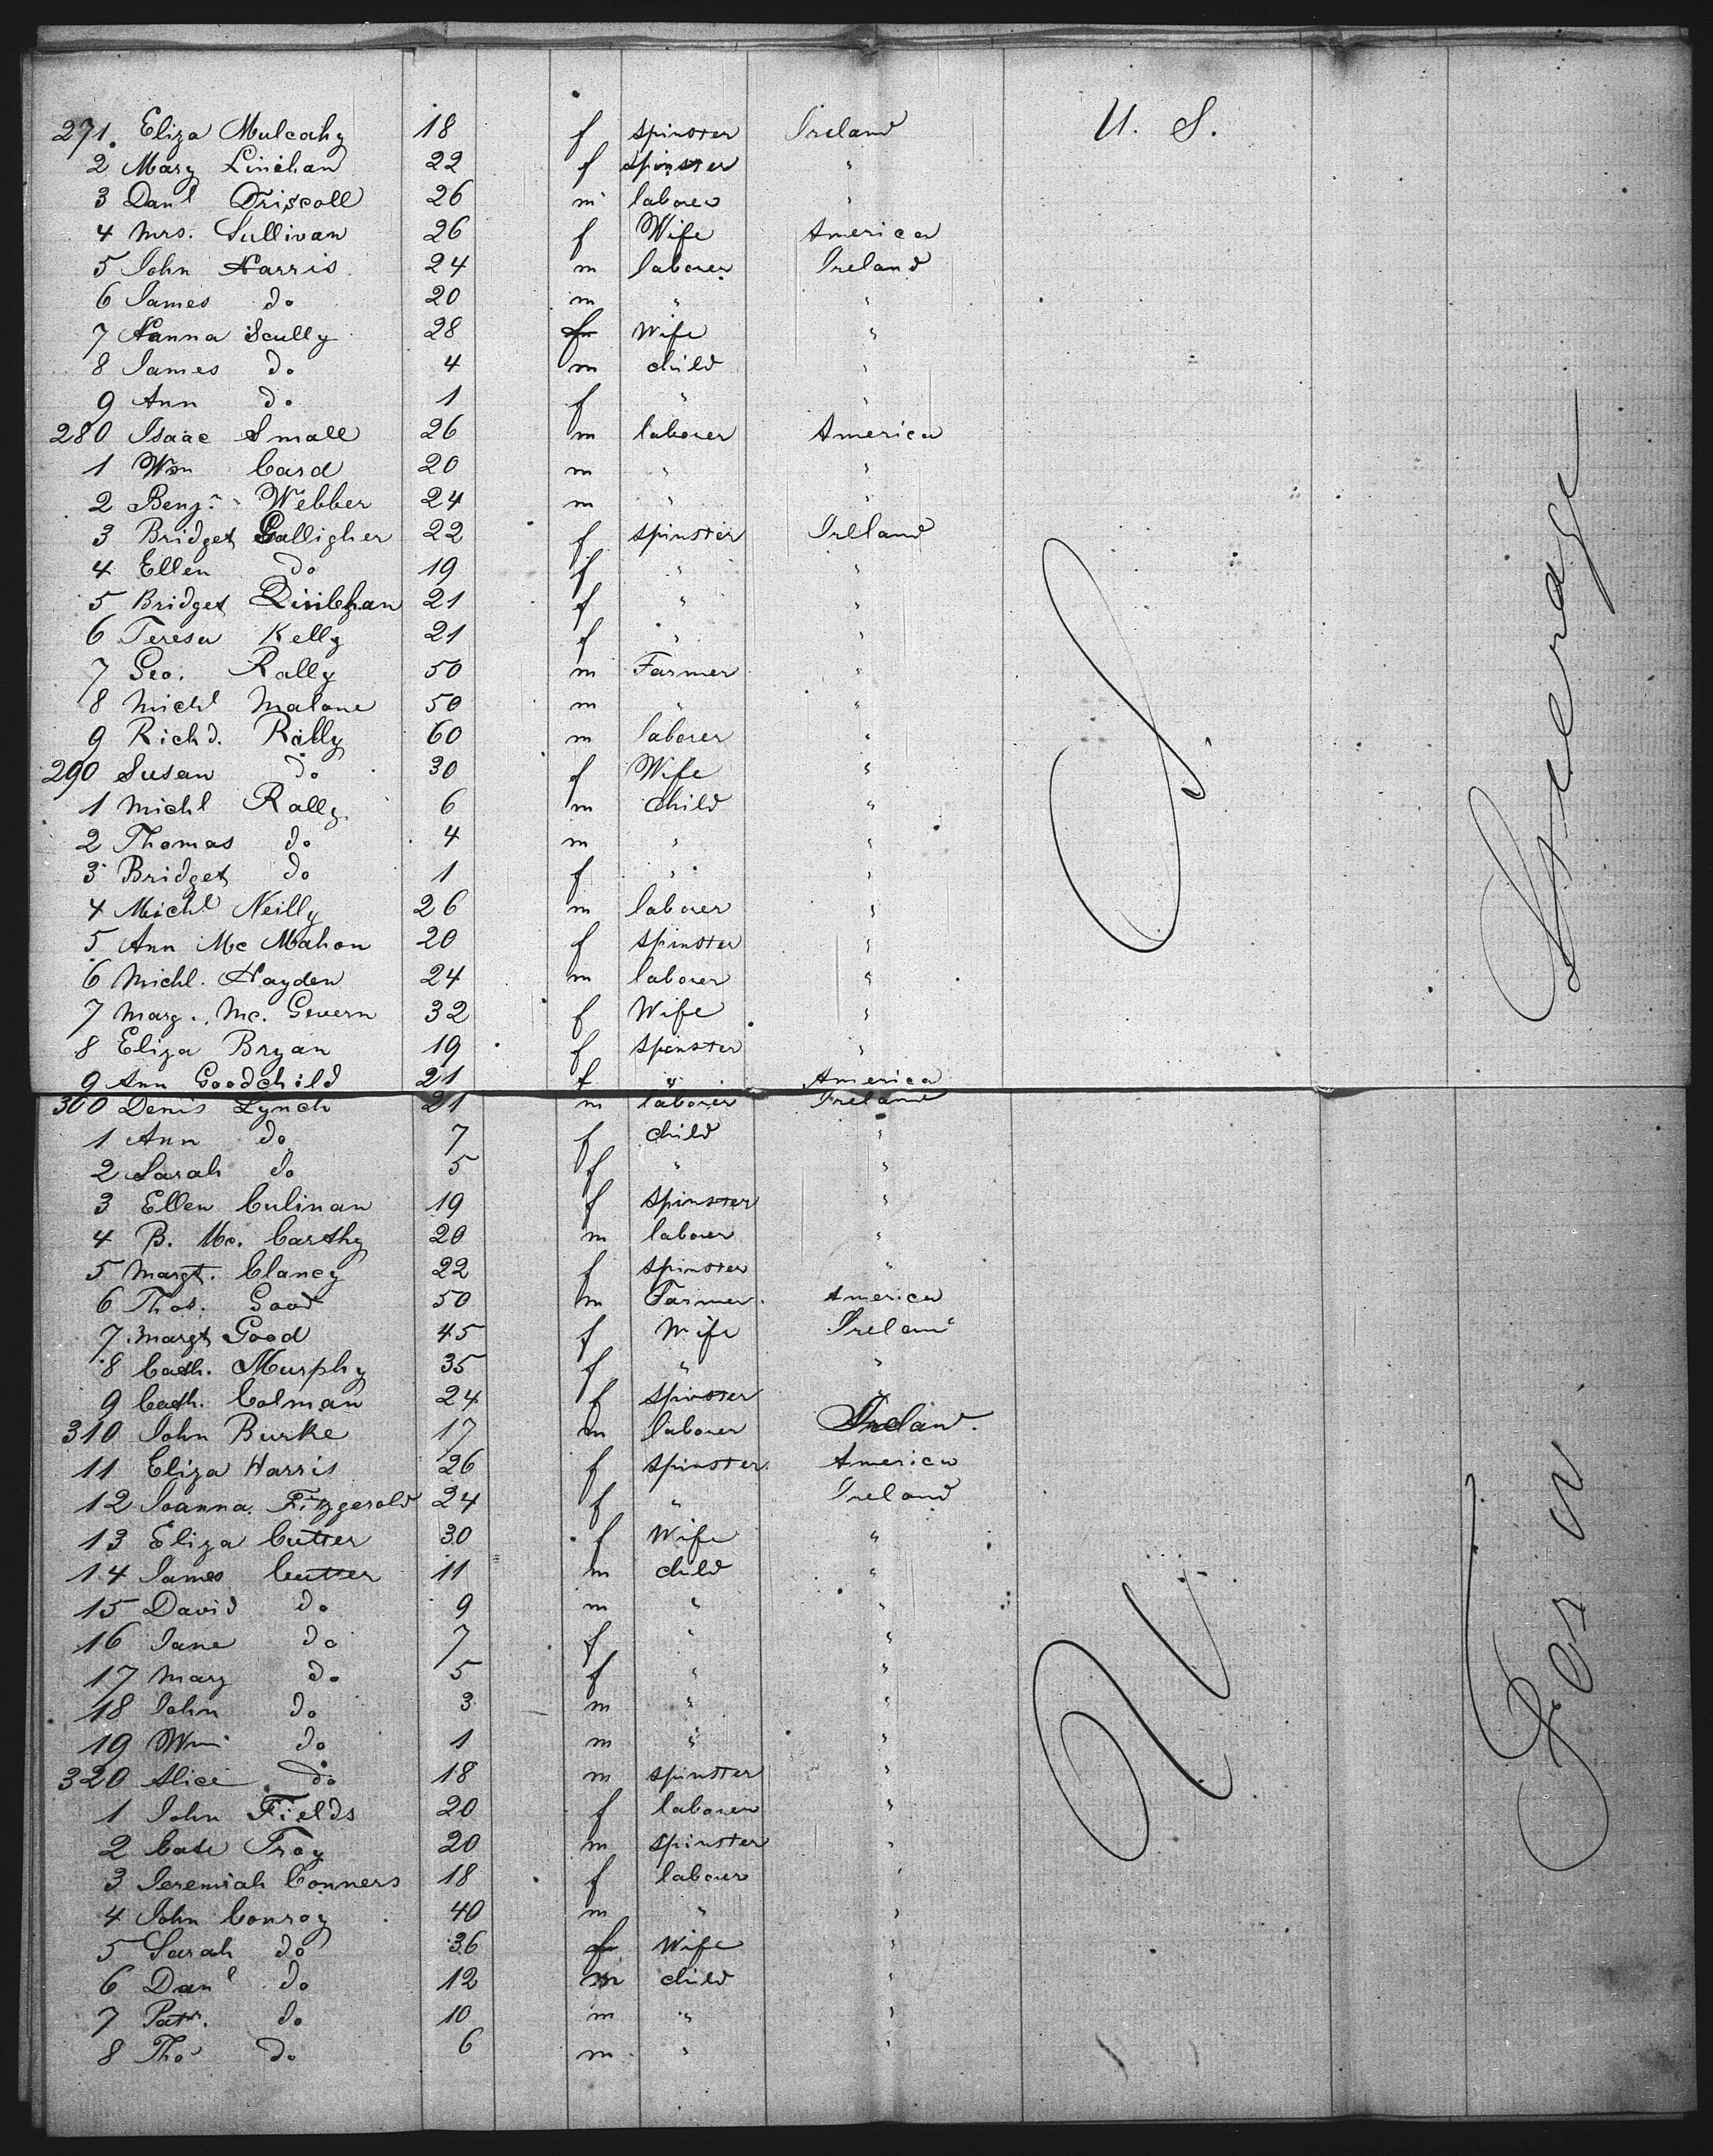 271. Eliza Mulcahy 18 f spinster Ireland U. S.
2 Mary Linehan 22 f spinster "
3 Danl Driscoll 26 m laborer "
4 Mrs. Sullivan 26 f Wife America
5 John Harris 24 m laborer Ireland
6 James do 20 m " "
7 Hanna Scully 28 f Wife "
8 James do 4 m child "
9 Ann do 1 f " "
280 Isaac Small 26 m laborer America
1 Wm Card 20 m " "
2 Benj. Webber 24 m " "
3 Bridget Galligher 22 f spinster Ireland
4 Ellen do 19 f " "
5 Bridget 21 f " "
6 Teresa Kelly 21 f " "
7 Geo. Rally 50 m Farmer "
8 Michl Malone 50 m " "
9 Richd. Rally 60 m laborer "
290 Susan do 30 f Wife "
1 Michl Rally 6 m child "
2 Thomas do 4 m " "
3 Bridget do 1 f " "
4 Michl Neilly 26 m laborer "
5 Ann Mc Mahon 20 f spinster "
6 Michl. Hayden 24 m laborer "
7 Marg. Mc. Govern 32 f Wife "
8 Eliza Bryan 19 f spinster "
9 Ann Goodchild 21 f " America
300 Denis Lynch 21 m laborer Ireland
1 Ann do 7 f child "
2 Sarah do 5 f " "
3 Ellen Culinan 19 f spinster "
4 B. Mc. Carthy 20 m laborer "
5 Margt. Clancy 22 f spinster "
6 Thos. Good 50 m Farmer America
7 Margt Good 45 f Wife Ireland
8 Cath. Murphy 35 f " "
9 Cath. Colman 24 f spinster "
310 John Burke 17 m laborer Ireland
11 Eliza Harris 26 f spinster America
12 Joanna Fitzgerald 24 f " Ireland
13 Eliza Cutter 30 f Wife "
14 James Cutter 11 m child "
15 David do 9 m " "
16 Jane do 7 f " "
17 Mary do 5 f " "
18 John do 3 m " "
19 Wm do 1 m " "
320 Alice do 18 m spinster "
1 John Fields 20 f laborer "
2 Cate Troy 20 m spinster "
3 Jeremiah Conners 18 f laborer "
4 John Conroy 40 m " "
5 Sarah do 36 f Wife "
6 Danl do 12 m child "
7 Patk. do 10 m " "
8 Tho do 6 m " "
Steerage